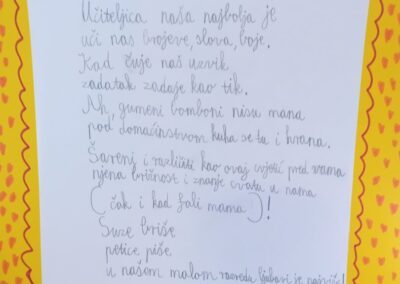 Učiteljica naša najbolja je
uči nas brojeve, slova, boje.
Kad čuje naš uzvik
zadatak zadaje kao tik.
Ah, gumeni bomboni nisu mana
pod domaćinstvom kuha se ta i hrana.
Šareni i različiti kao ovaj cvjetić pred vama
njena brižnost i znanje cvata u nama
(čak i kad fali mama)!
Suze briše
petice piše
u našem malom razredu ljubavi je najviše!